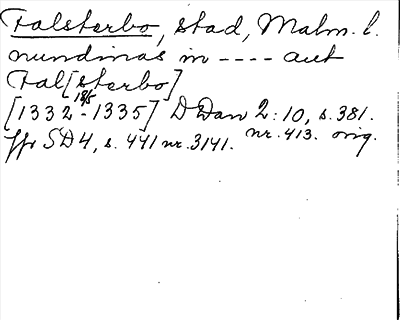 Falsterbo, stad, Malm. l.
nundinas in ---- aut
Fal[sterbo]
[1332 18/5 - 1335] DDan 2:10, s. 381.
nr. 413. orig.
Jfr SD4, s. 441 nr. 3141.